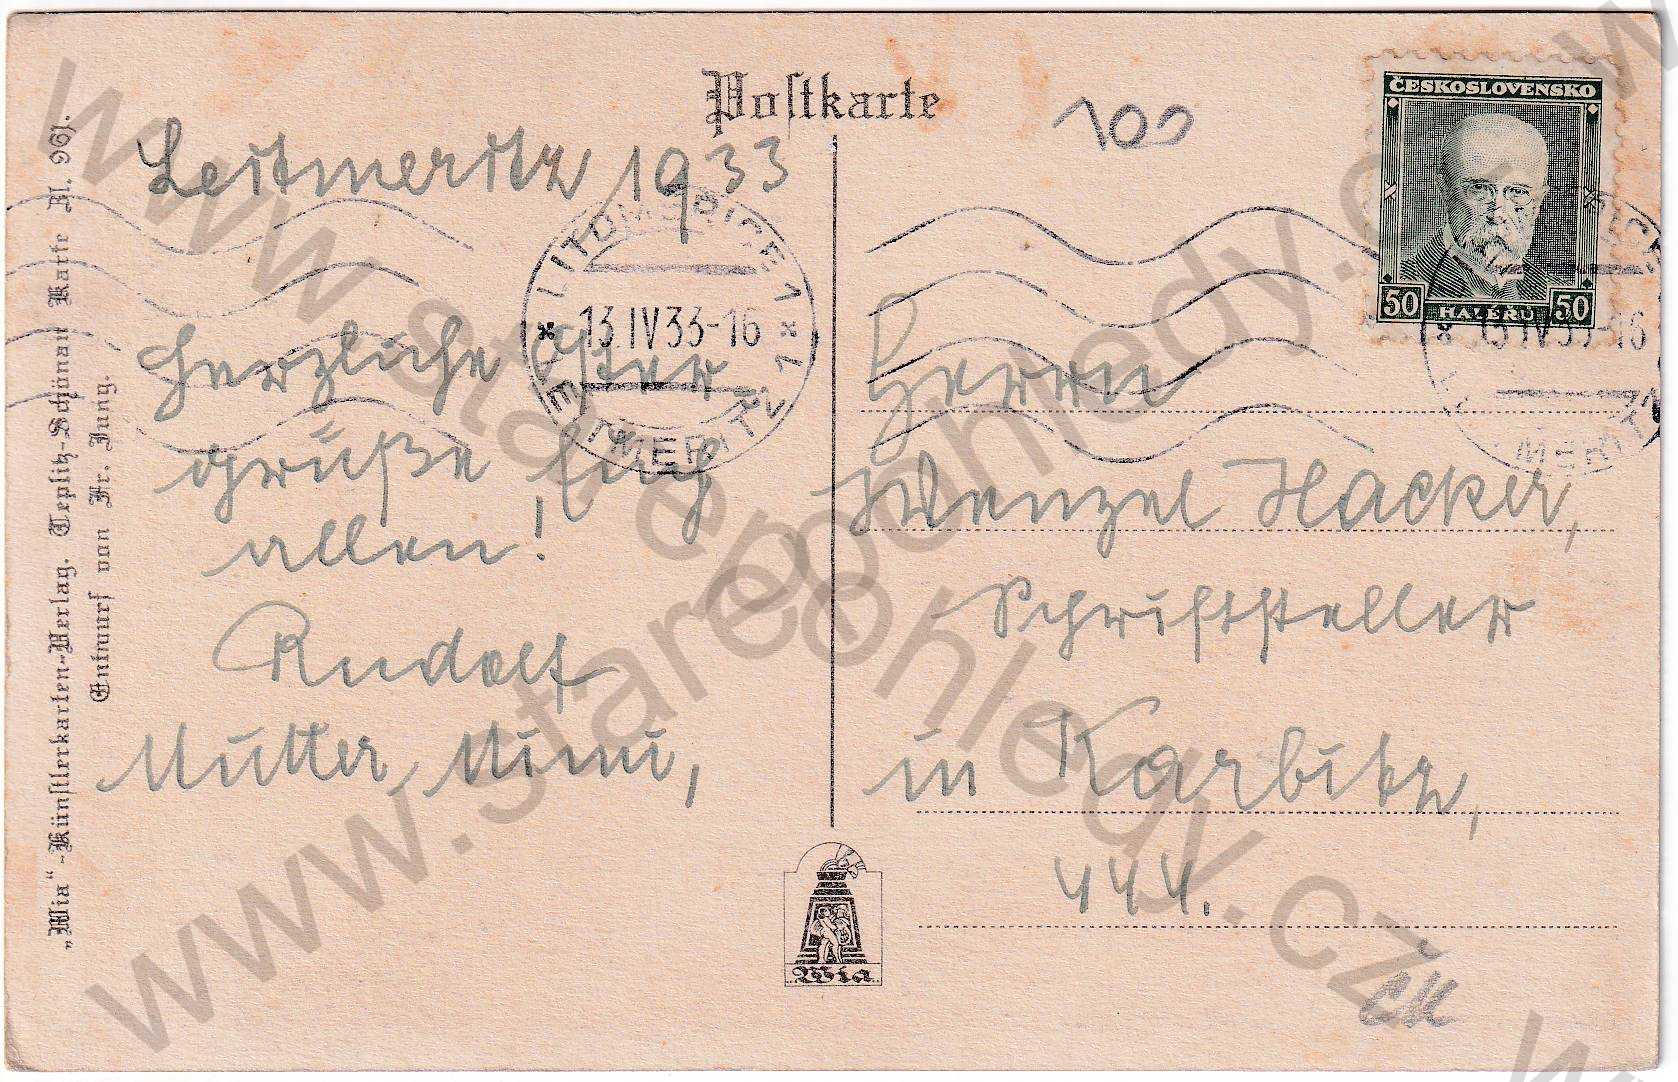 Postkarte
100
ČESKOSLOVENSKO
50 HALÉRŮ 50
Leitmeritz 1933
LITOMĚŘICE 1
13 IV 33-16
LEITMERITZ 1
Herzliche Oster
grüße Euch
allen!
Rudolf
Mutter, Mimi,
Herrn
Wenzel Hacker,
Schriftsteller
in Karbitz,
444.
„Wia“-Künstlerkarten-Verlag. Teplitz-Schönau Karte Al. 961.
Entwurf von Fr. Jung.
Wia
ČM
www.starepohledy.cz
www.starepohledy.cz